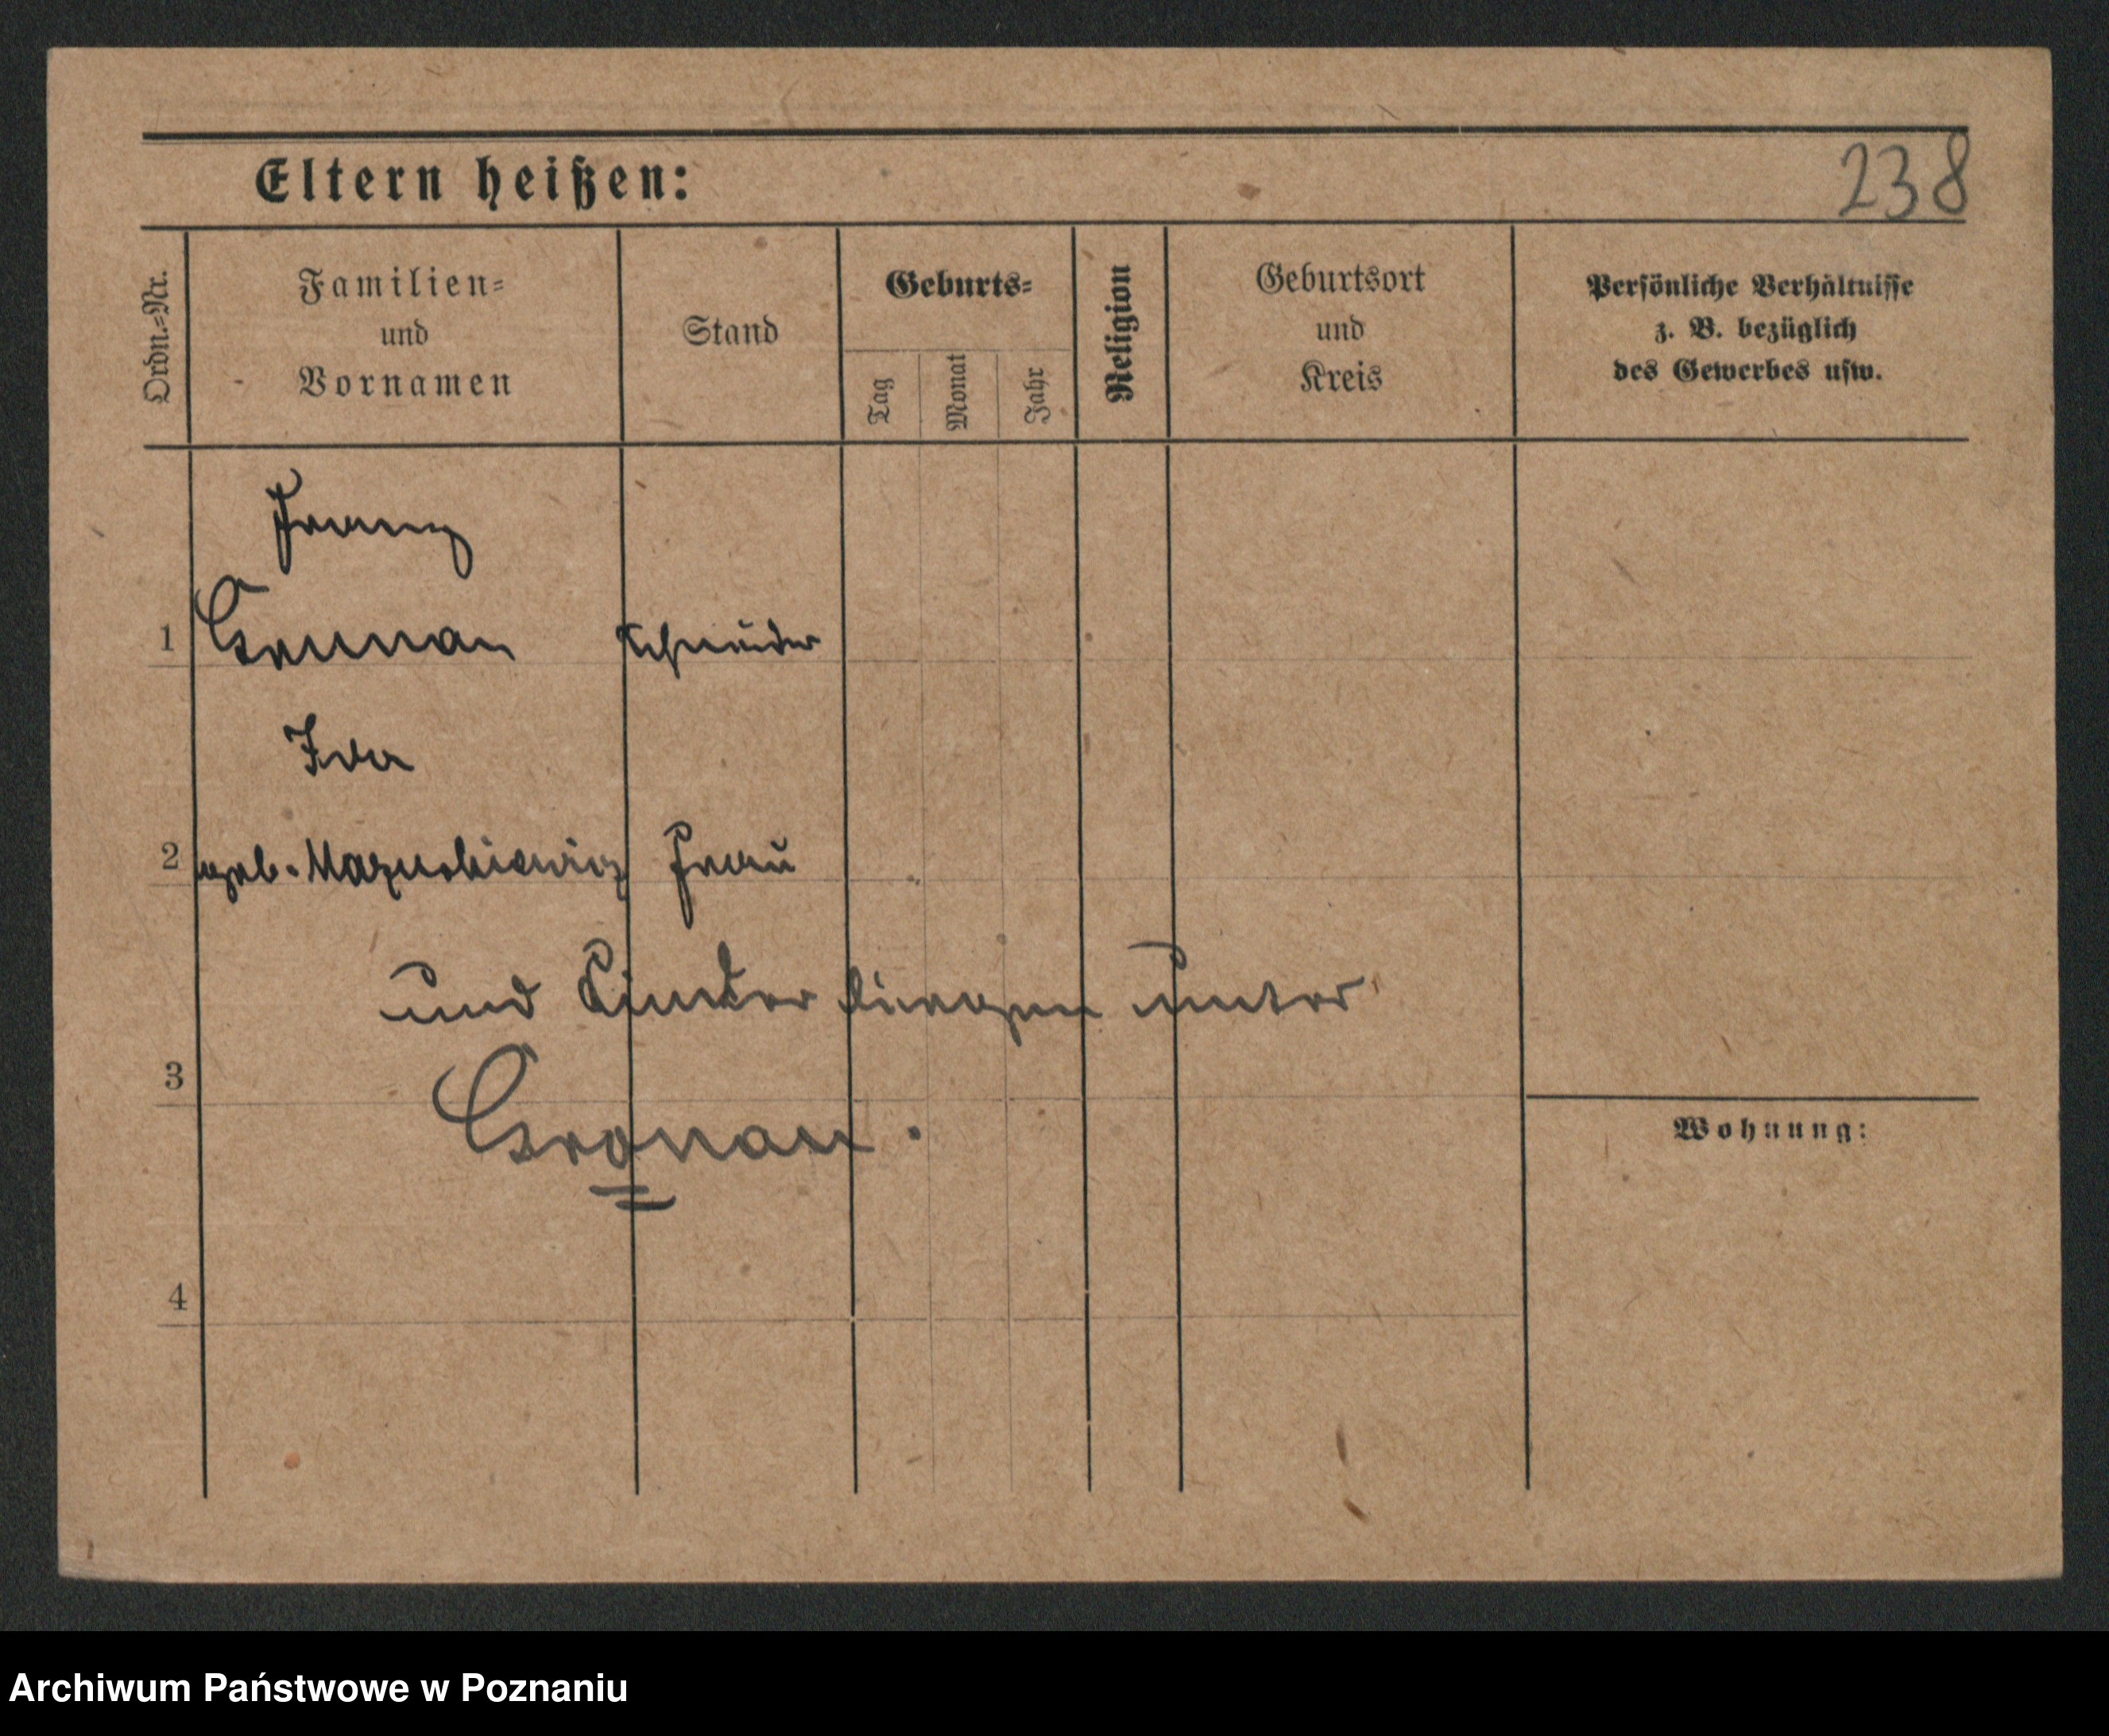 238
Eltern heißen:
Ordn.=Nr.
Familien=
und
Vornamen
Stand
Geburts=
Tag
Monat
Jahr
Religion
Geburtsort
und
Kreis
Persönliche Verhältnisse
z. B. bezüglich
des Gewerbes usw.
Franz
1 Schneider
Ida
2 geb. Frau
und Kinder liegen unter
3 Gronau.
Wohnung:
4
Archiwum Państwowe w Poznaniu